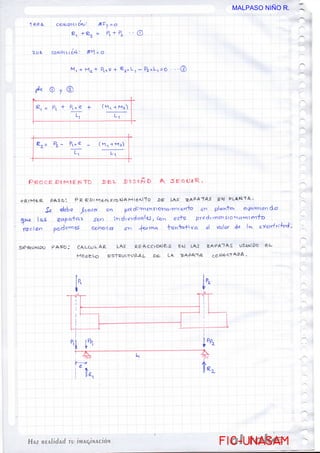 MALPASO NIÑO R.
1ERA CONDICIÓN: ΣFy = 0
R1 + R2 = P1 + P2 ... ①
2DA CONDICIÓN: ΣM = 0
M1 + M2 + P1.e + R2.L1 - P2.L1 = 0 ... ②
de ① y ②
R1 = P1 + P1.e/L1 + (M1+M2)/L1
R2 = P2 - P1.e/L1 - (M1+M2)/L1
PROCEDIMIENTO DEL DISEÑO A SEGUIR.
PRIMER PASO: PREDIMENSIONAMIENTO DE LAS ZAPATAS EN PLANTA.
Se debe hacer un predimensionamiento en planta asumiendo
que las zapatas son individuales, con este predimensionamiento
recien podemos conocer en forma tentativa el valor de la excentricidad.
SEGUNDO PASO: CALCULAR LAS REACCIONES EN LAS ZAPATAS USANDO EL
MODELO ESTRUCTURAL DE LA ZAPATA CONECTADA.
P1
P2
P1
PP1
PP2
L1
e
R1
R2
Haz realidad tu imaginación
FIC-UNASAM